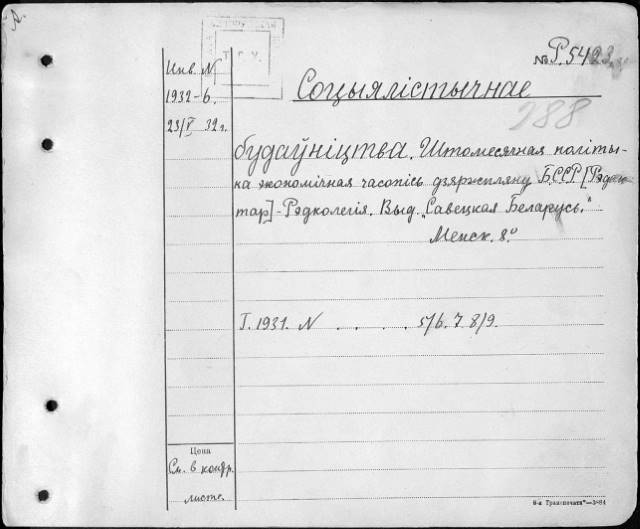 Инв. N
1932-6.
23/V 32г.
Т. Г. У.
№ Р. 5423
288
Соцыялістычнае
будаўніцтва. Штомесячная політы-
ка экономічная часопісь дзяржпляну БССР [Рэдак-
тар]-Рэдколегія. Выд. "Савецкая Беларусь."
Менск. 8.°
I. 1931. N . . . . 5/6. 7. 8/9.
Цена
См. в конфр.
листе.
8-я Транспечати"—3984